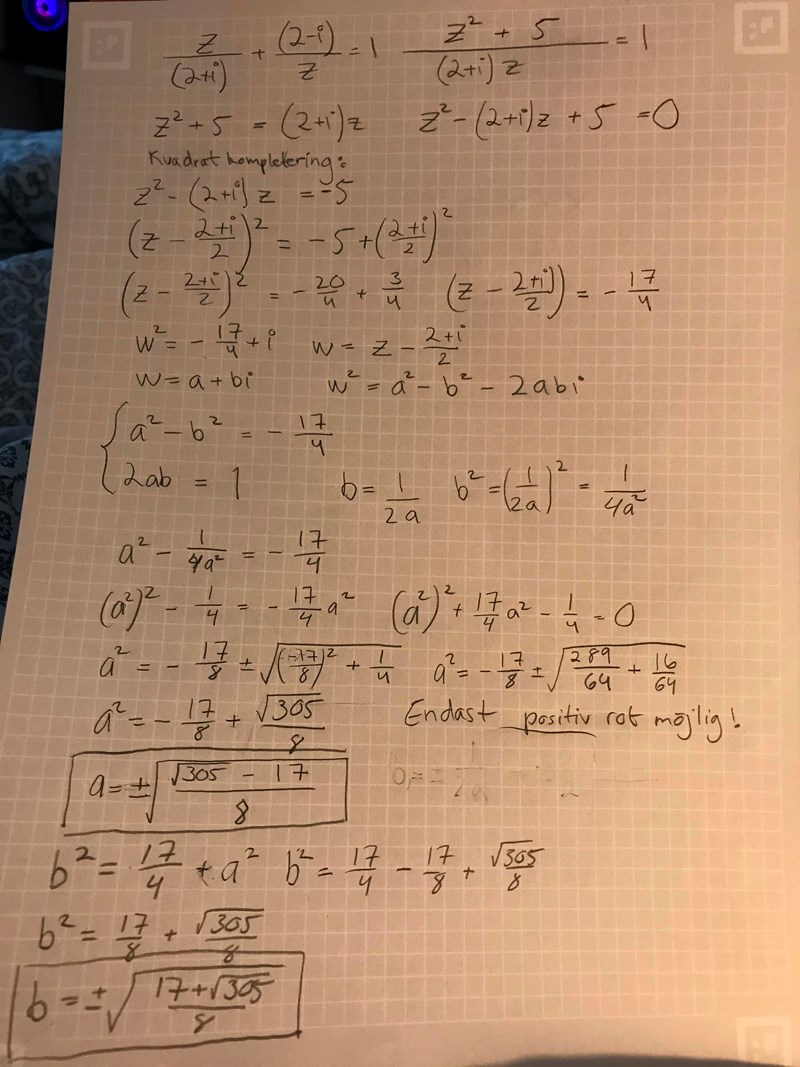 z/(2+i) + (2-i)/z = 1   (z² + 5)/((2+i) z) = 1
z² + 5 = (2+i)z   z² - (2+i)z + 5 = 0
Kvadrat komplettering:
z² - (2+i) z = -5
(z - (2+i)/2)² = -5 + ((2+i)/2)²
(z - (2+i)/2)² = - 20/4 + 3/4   (z - (2+i)/2) = - 17/4
w² = - 17/4 + i   w = z - (2+i)/2
w = a + bi   w² = a² - b² - 2abi
{ a² - b² = - 17/4
2ab = 1   b = 1/(2a)   b² = (1/(2a))² = 1/(4a²)
a² - 1/(4a²) = - 17/4
(a²)² - 1/4 = - 17/4 a²   (a²)² + 17/4 a² - 1/4 = 0
a² = - 17/8 ± √((-17/8)² + 1/4)   a² = - 17/8 ± √(289/64 + 16/64)
a² = - 17/8 + √305/8   Endast positiv rot möjlig!
a = ± √((√305 - 17)/8)
b² = 17/4 + a²   b² = 17/4 - 17/8 + √305/8
b² = 17/8 + √305/8
b = ± √((17+√305)/8)